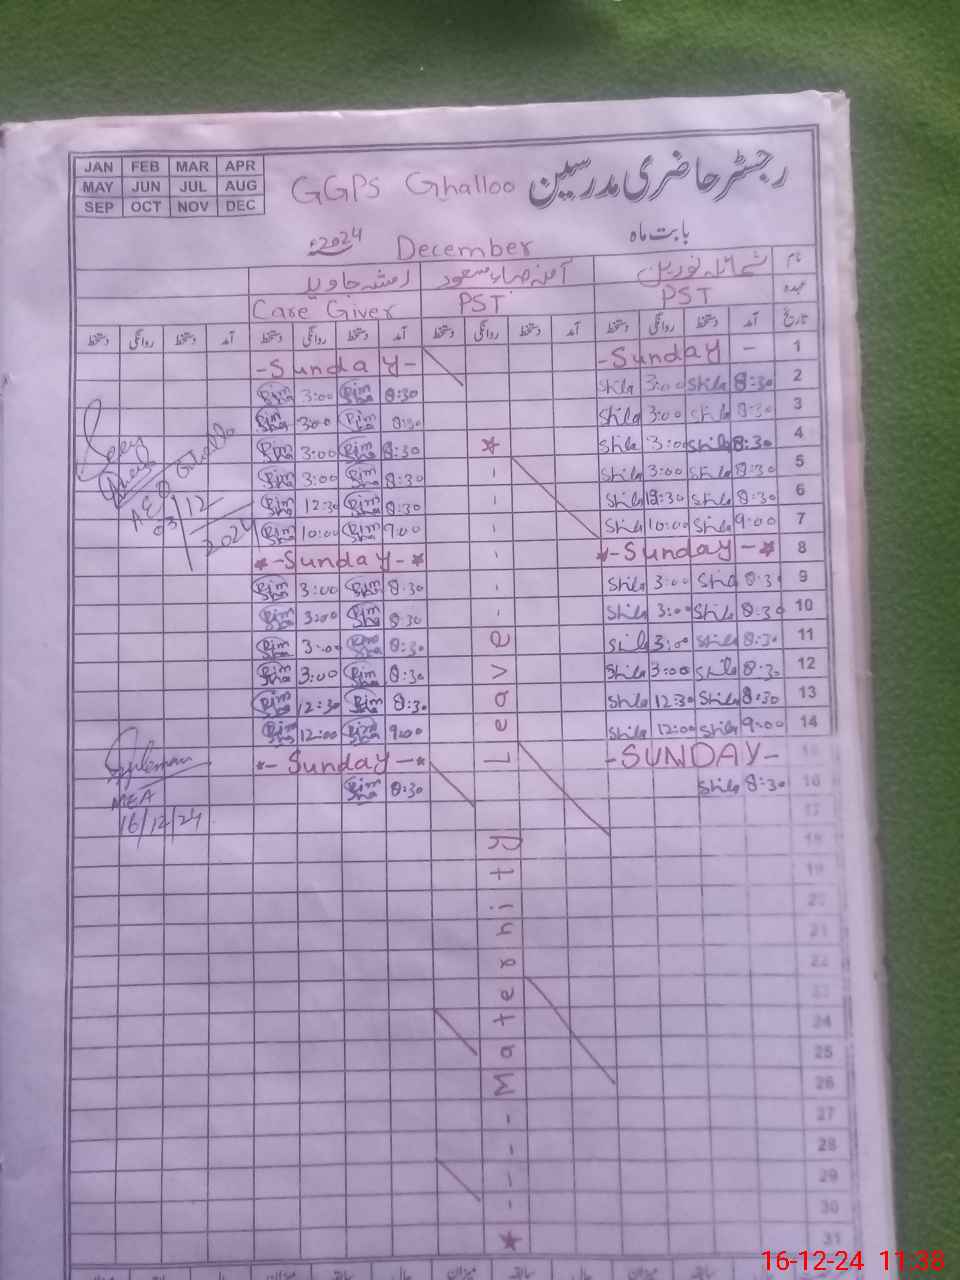 JAN FEB MAR APR
MAY JUN JUL AUG
SEP OCT NOV DEC
GGPS Ghalloo رجسٹر حاضری مدرسین
2024ء December بابت ماہ
نام شمائلہ نورین آمنہ ضیاء مسعود رمشہ جاوید
عہدہ PST PST Care Giver
تاریخ آمد دستخط روانگی دستخط آمد دستخط روانگی دستخط آمد دستخط روانگی دستخط آمد دستخط روانگی دستخط
-Sunday- -Sunday- 1
3:00 8:30 Shila 3:00 Shila 8:30 2
3:00 8:30 Shila 3:00 Shila 8:30 3
3:00 8:30 Shila 3:00 Shila 8:30 4
3:00 8:30 Shila 3:00 Shila 8:30 5
12:30 8:30 Shila 12:30 Shila 8:30 6
10:00 9:00 Shila 10:00 Shila 9:00 7
*-Sunday-* *-Sunday-* 8
3:00 8:30 Shila 3:00 Shila 8:30 9
3:00 8:30 Shila 3:00 Shila 8:30 10
3:00 8:30 Shila 3:00 Shila 8:30 11
3:00 8:30 Shila 3:00 Shila 8:30 12
12:30 8:30 Shila 12:30 Shila 8:30 13
12:00 9:00 Shila 12:00 Shila 9:00 14
*- Sunday -* -SUNDAY- 15
8:30 Shila 8:30 16
17
18
19
20
21
22
23
24
25
26
27
28
29
30
31
*----Maternity Leave----*
AEO Ghalloo
03/12/2024
MEA
16/12/24
16-12-24 11:38